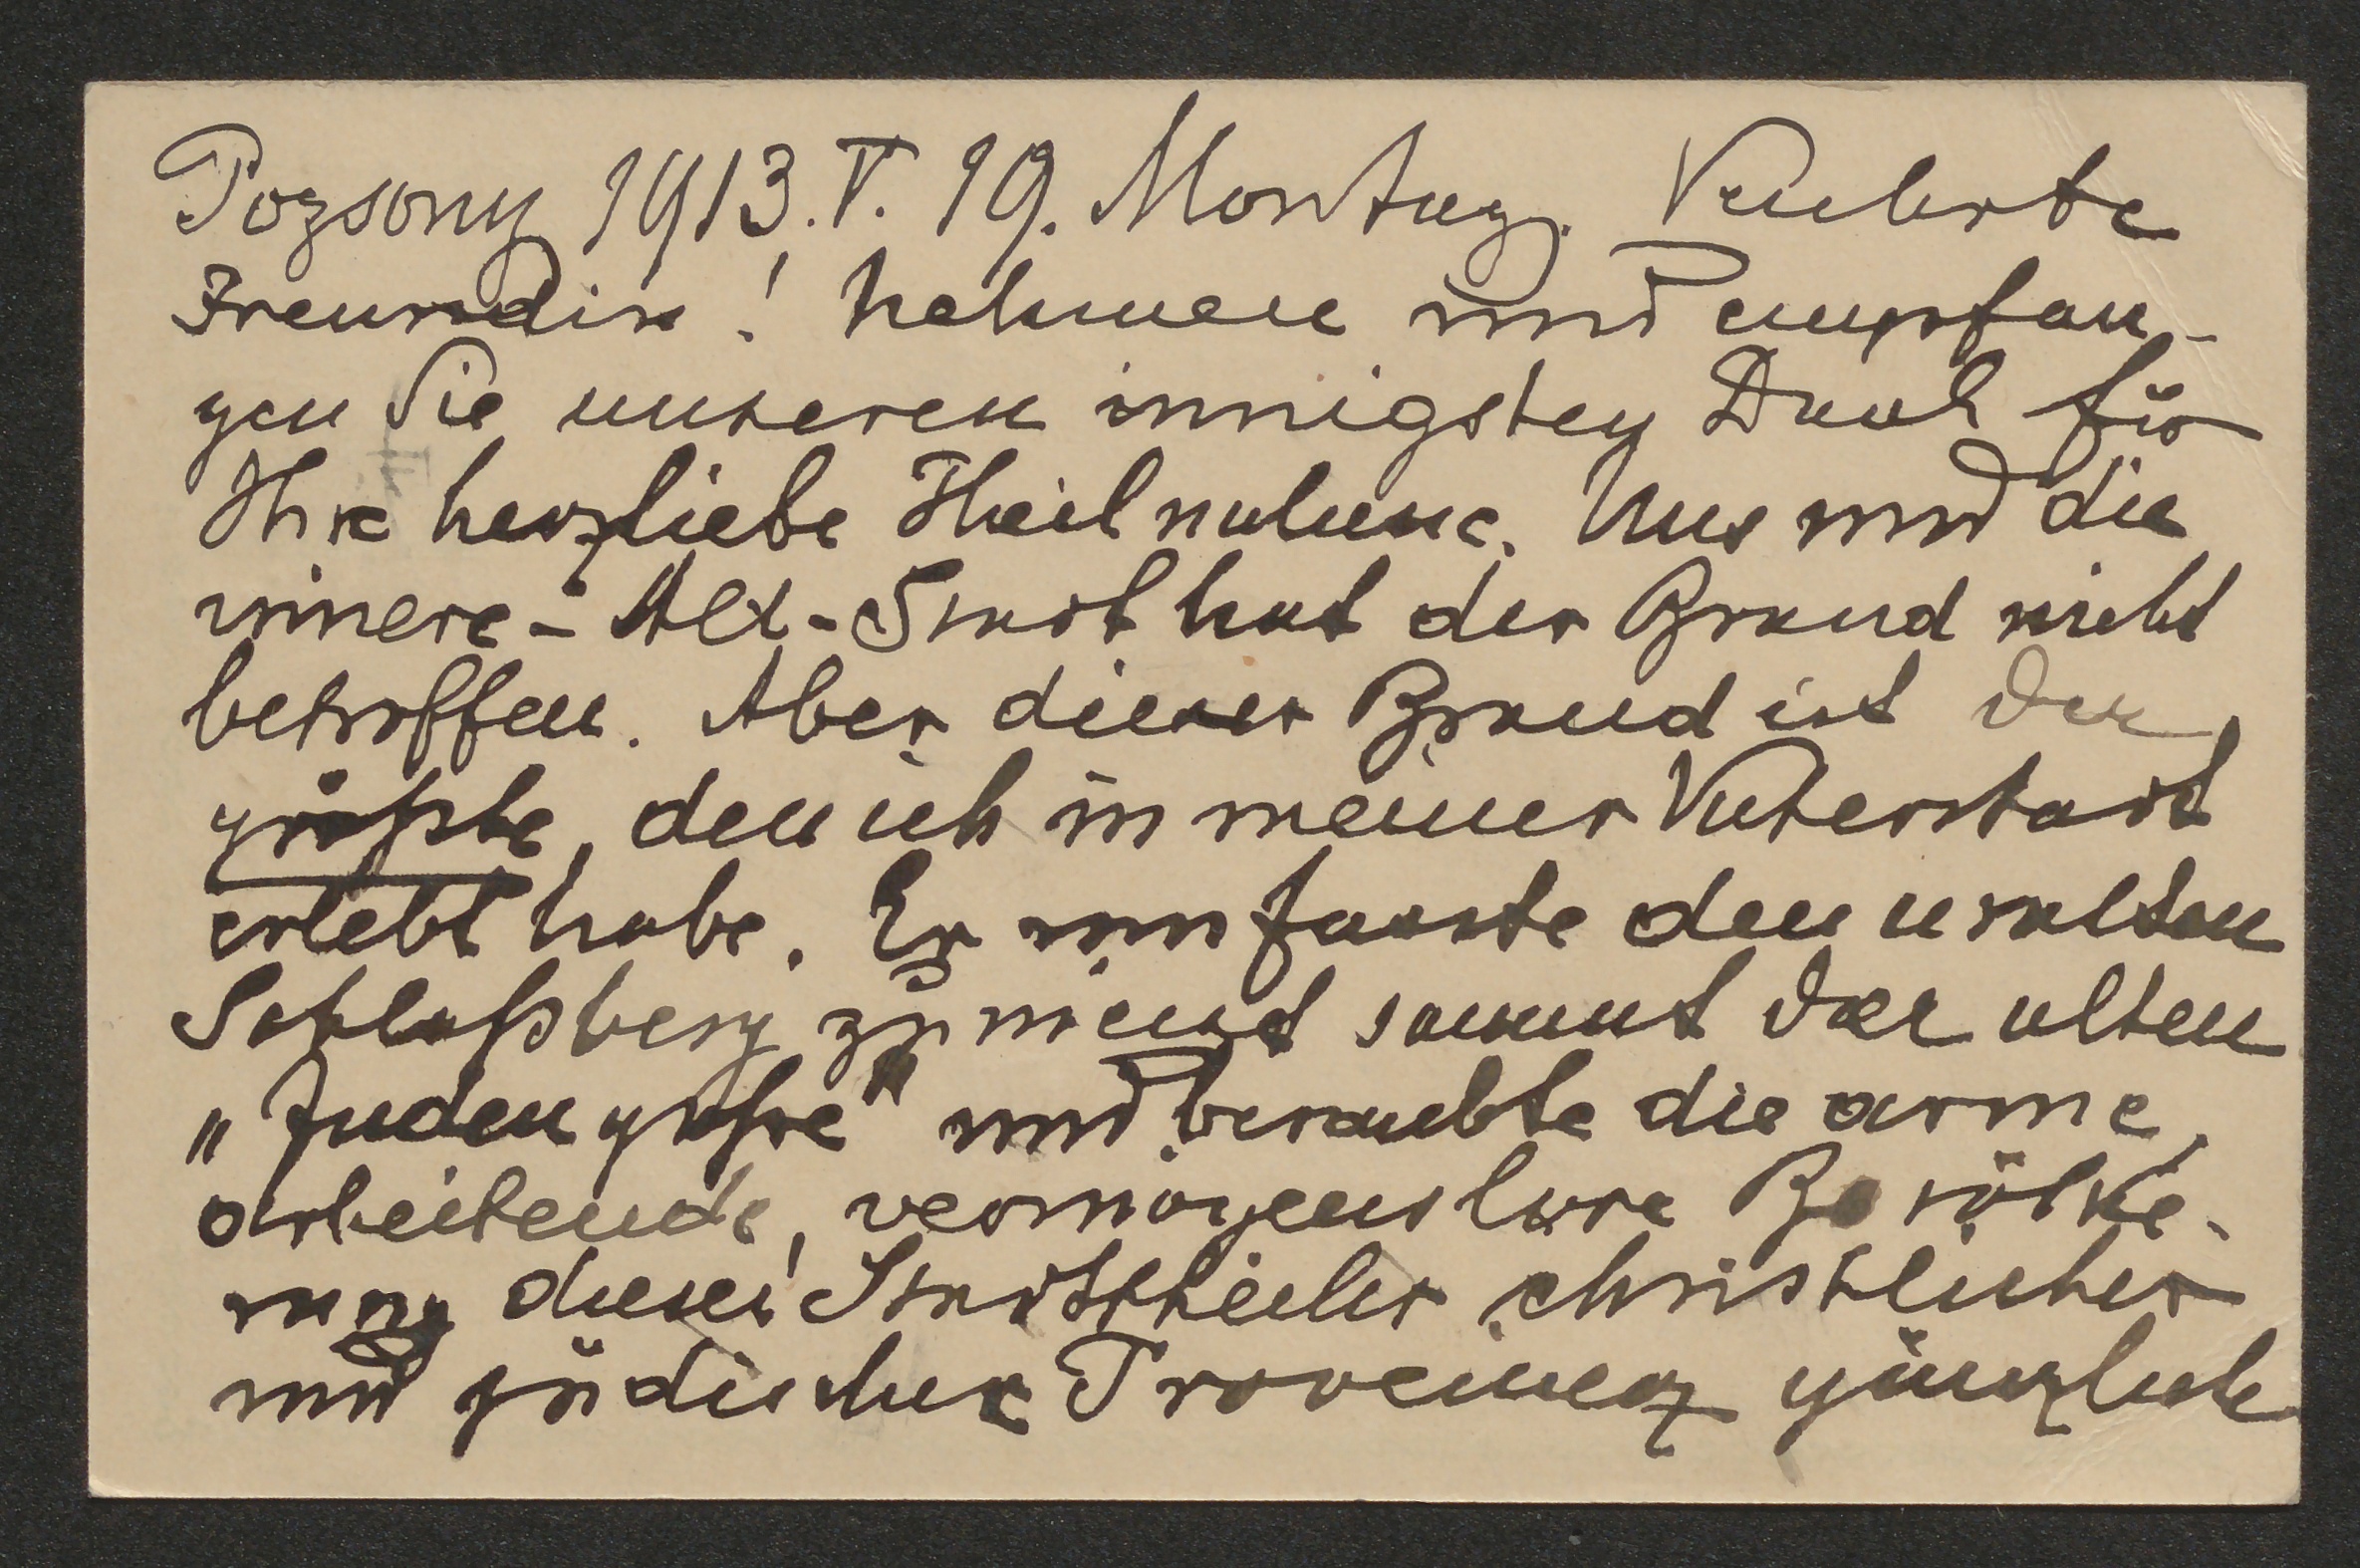 Pozsony 1913. V. 19. Montag. Verehrte
Freundin! Nehmen und empfan-
gen Sie unseren innigsten Dank für
Ihre herzliebe Theilnahme. Uns und die
innere-Alt-Stadt hat der Brand nicht
betroffen. Aber dieser Brand ist der
größte, den ich in meiner Vaterstadt
erlebt habe. Er umfasste den uralten
Schloßberg zumeist sammt der alten
„Judengasse" und beraubte die arme,
arbeitende, vermögenslose Bevölke-
rung dieses Stadttheiles christlicher
und jüdischer Provenienz gänzlich